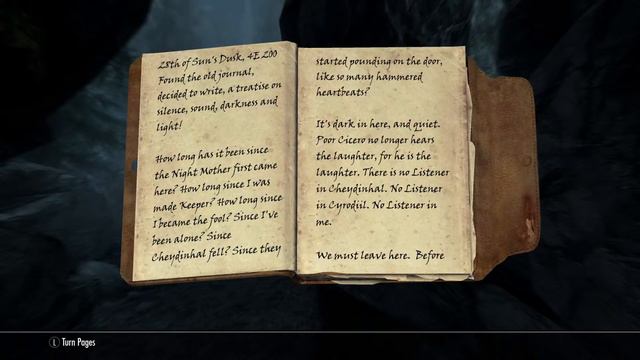 28th of Sun's Dusk, 4E 200
Found the old journal,
decided to write, a treatise on
silence, sound, darkness and
light!
How long has it been since
the Night Mother first came
here? How long since I was
made Keeper? How long since
I became the fool? Since I've
been alone? Since
Cheydinhal fell? Since they
started pounding on the door,
like so many hammered
heartbeats?
It's dark in here, and quiet.
Poor Cicero no longer hears
the laughter, for he is the
laughter. There is no Listener
in Cheydinhal. No Listener
in Cyrodiil. No Listener in
me.
We must leave here. Before
L Turn Pages